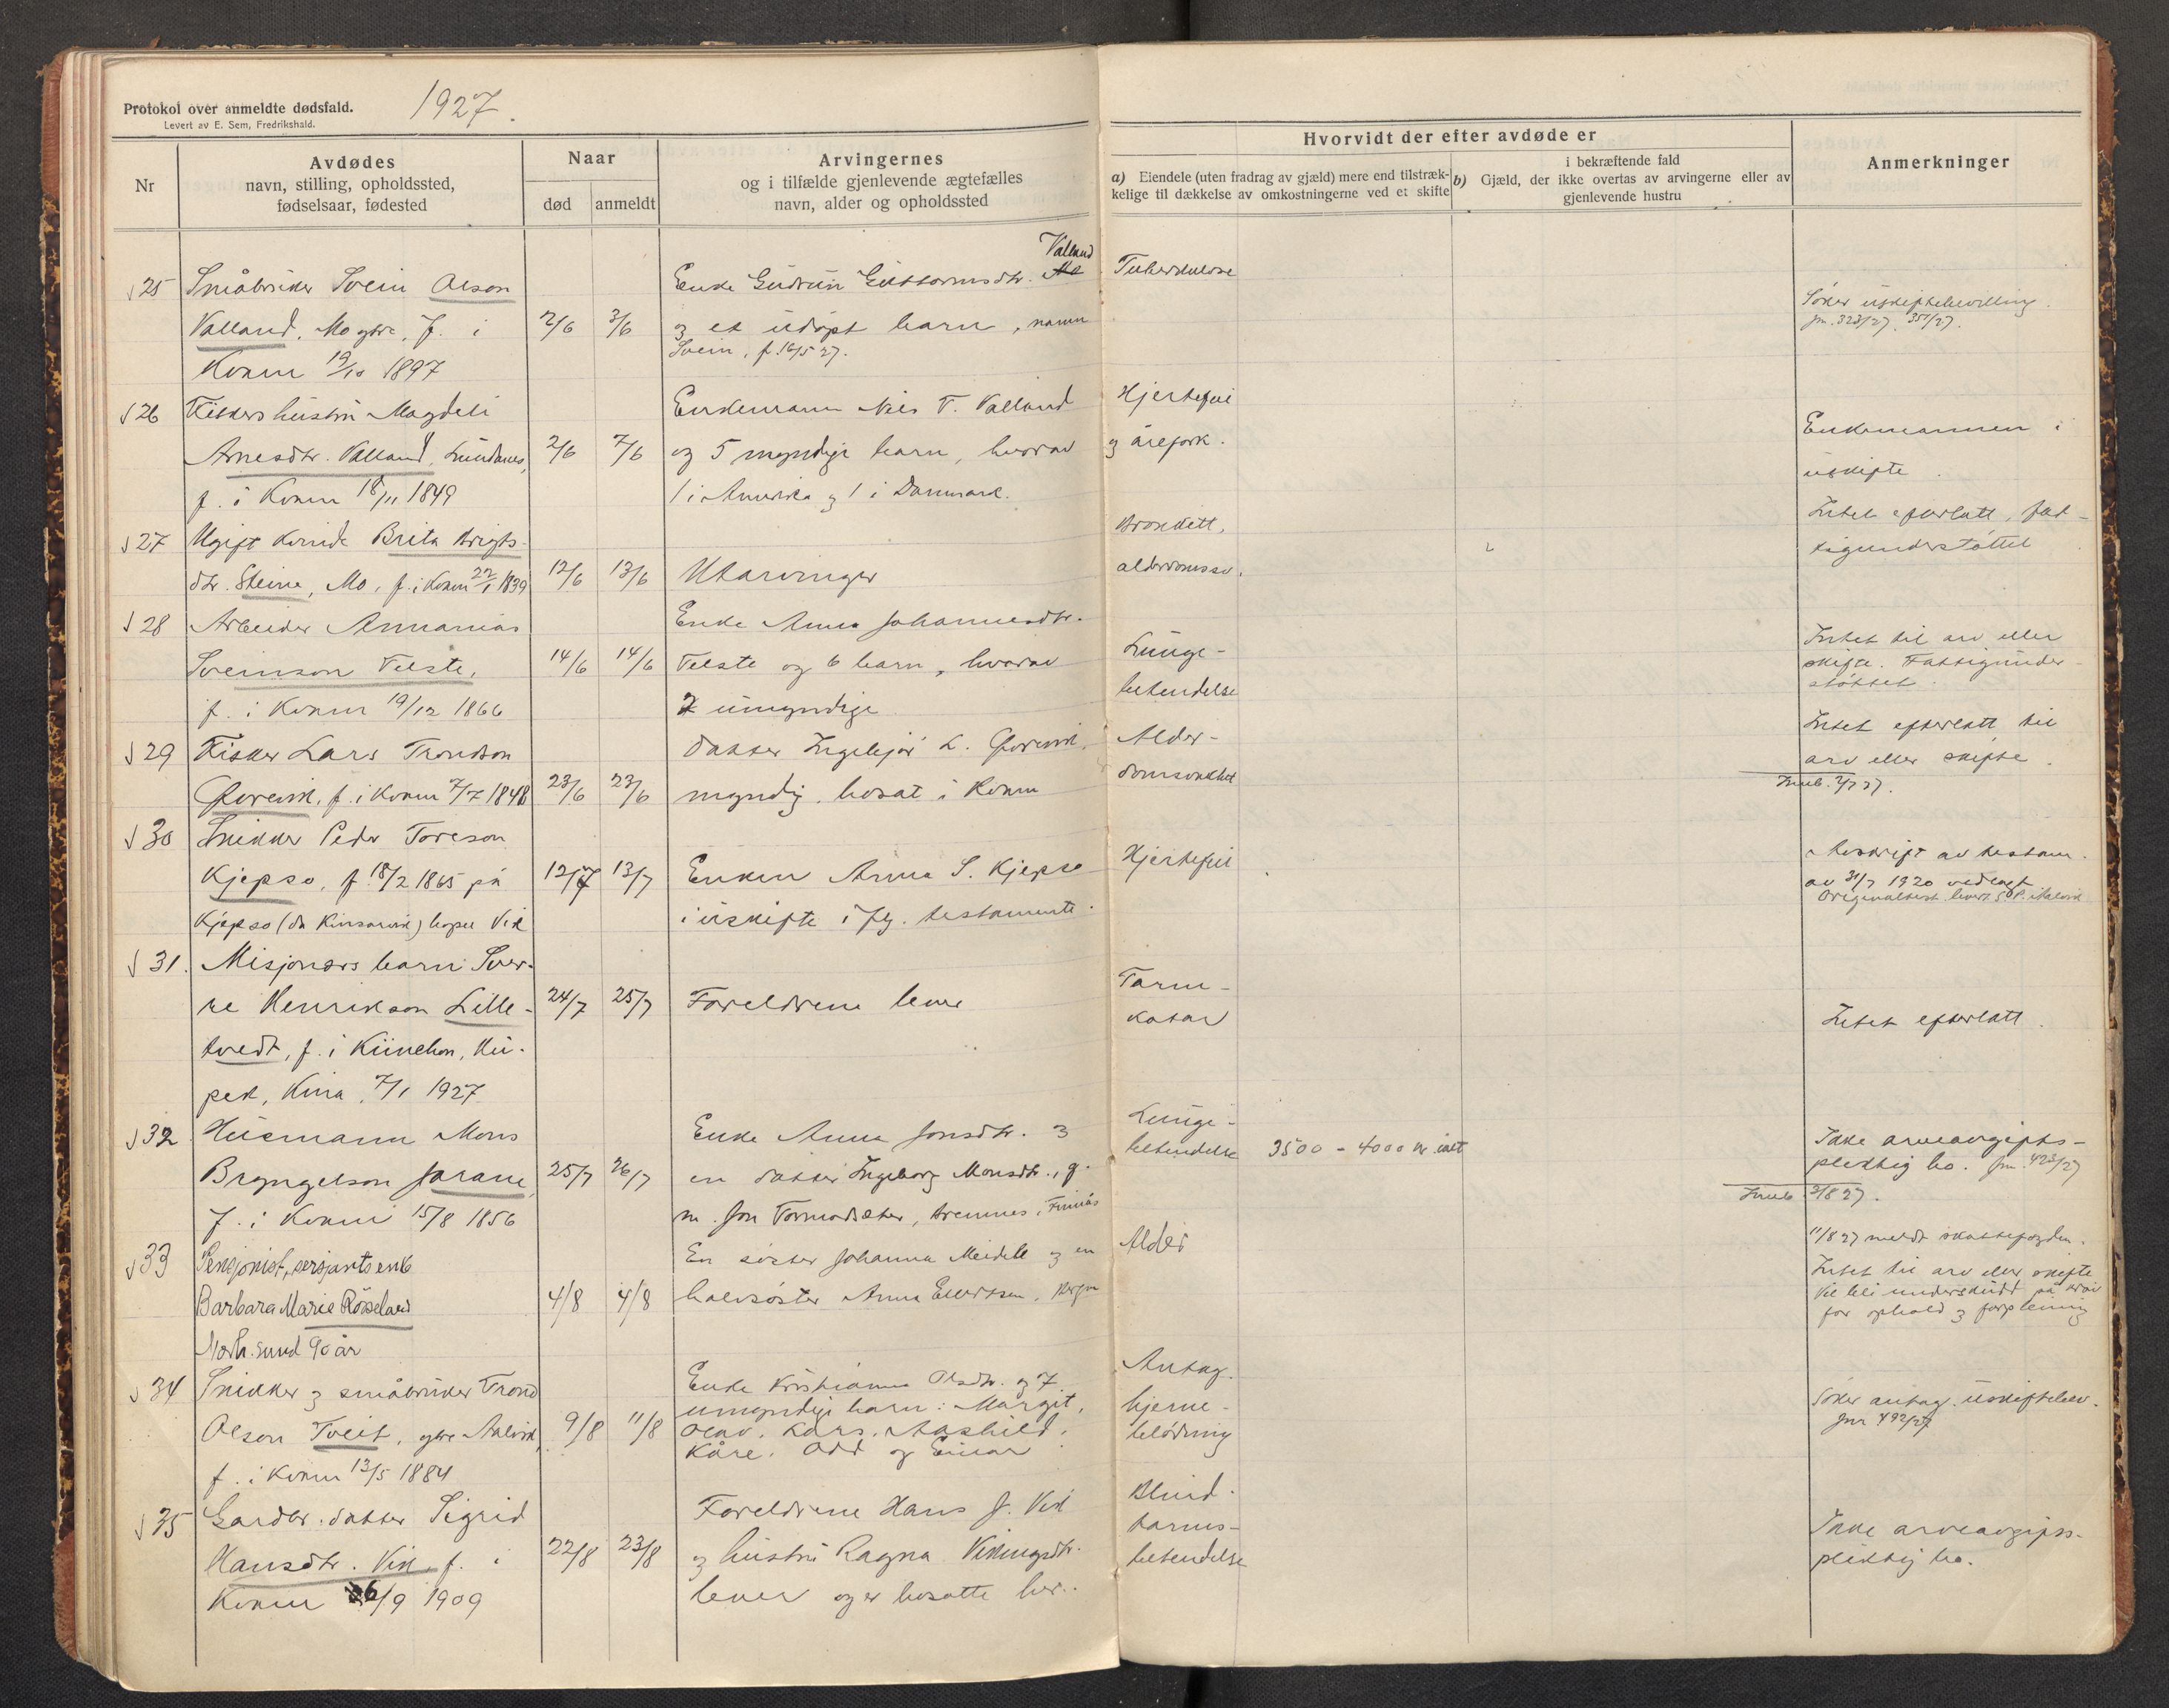 Protokol over anmeldte dødsfald.
Levert av E. Sem, Fredrikshald.
1927.
Nr
Avdødes
navn, stilling, opholdssted,
fødselsaar, fødested
Naar
død
anmeldt
Arvingernes
og i tilfælde gjenlevende ægtefælles
navn, alder og opholdssted
Hvorvidt der efter avdøde er
a) Eiendele (uten fradrag av gjæld) mere end tilstræk-
kelige til dækkelse av omkostningerne ved et skifte
i bekræftende fald
b) Gjæld, der ikke overtas av arvingerne eller av
gjenlevende hustru
Anmerkninger
25 Småbruker Svein Olson
Valland, Mo ytre, f. i
Kvam 19/10 1897
2/6 3/6
Enke Gudrun Guttormsdtr. Valland
og et udøpt barn, namn
Svein, f. 16/5 27.
Tuberkulose
Søker uskiftebevilling.
jnr. 323/27, 351/27.
26 Fiskers hustru Magdeli
Arnesdtr. Valland, Lundanes,
f. i Kvam 18/11 1849
2/6 7/6
Enkemann Nils T. Valland
og 5 myndige barn, hvorav
1 i Amerika og 1 i Danmark.
Hjertefeil
og årefork.
Enkemannen i
uskifte.
27 Ugift kvinde Brita Brigts-
dtr. Steine, Mo, f. i Kvam 22/1 1839
12/6 13/6
Utarvinger
Bronkitt,
alderdomssv.
Intet efterlatt, fat-
tigunderstøttet
28 Arbeider Annanias
Sveinson Telste,
f. i Kvam 19/12 1866
14/6 14/6
Enke Anna Johannesdtr.
Telste og 6 barn, hvorav
2 umyndige
Lunge-
betendelse
Intet til arv eller
skifte. Fattigunder-
støttet.
29 Fisker Lars Trondson
f. i Kvam 7/7 1848
23/6 23/6
datter Ingebjør L.
myndig, bosat i Kvam
Alder-
domssvakhet
Intet efterlatt til
arv eller skifte.
Innb. 2/7 27.
30 Snikker Peder Toreson
Kjepso, f. 18/2 1865 på
Kjepso (da Kinsarvik) Vik
12/7 13/7
Enken Anna S. Kjepso
i uskifte iflg. testamente.
Hjertefeil
Avskrift av testam.
av 31/7 1920 vedlagt
31. Misjonærs barn Sver-
re Henrikson Lille-
tvedt, f. i Küinchon, Hu-
peh, Kina, 7/1 1927
24/7 25/7
Foreldrene lever
Tarm-
katar
Intet efterlatt.
32 Husmann Mons
Bryngelson Jarane,
f. i Kvam 15/8 1856
25/7 26/7
Enke Anna Jonsdtr. og
en datter Ingeborg Monsdtr., g.
m. Jon Tormodsæter, Bremnes, Finnås
Lunge-
betendelse
3500 - 4000 kr. ialt
Ikke arveavgifts-
pliktig bo. jnr. 423/27
Innb. 3/8 27.
33 Pensjonist, sersjants enke
Barbara Marie Røseland
Norh.sund 90 år
4/8 4/8
En søster Johanna Meidell og en
halvsøster Anna Ellertsen, Bergen
Alder
11/8 27 meldt skattefogden.
Intet til arv eller skifte
Vil bli underskudd på krav
for ophold og forpleining
34 Snikker og småbruker Trond
Olson Tveit, ytre Aalvik,
f. i Kvam 13/5 1884
9/8 11/8
Enke Kristianna Olsdtr. og 7
umyndige barn: Margit,
Olav, Lars, Aashild,
Kåre, Odd og Einar
Antag.
hjerne-
blødning
Søker antag. uskiftebev.
Jnr 492/27
35 Gardbr. datter Sigrid
Hansdtr. Vik, f. i
Kvam 26/9 1909
22/8 23/8
Foreldrene Hans J. Vik
og hustru Ragna Vikingsdtr.
lever og er bosatte her.
Blind-
tarms-
betendelse
Ikke arveavgifts-
pliktig bo.